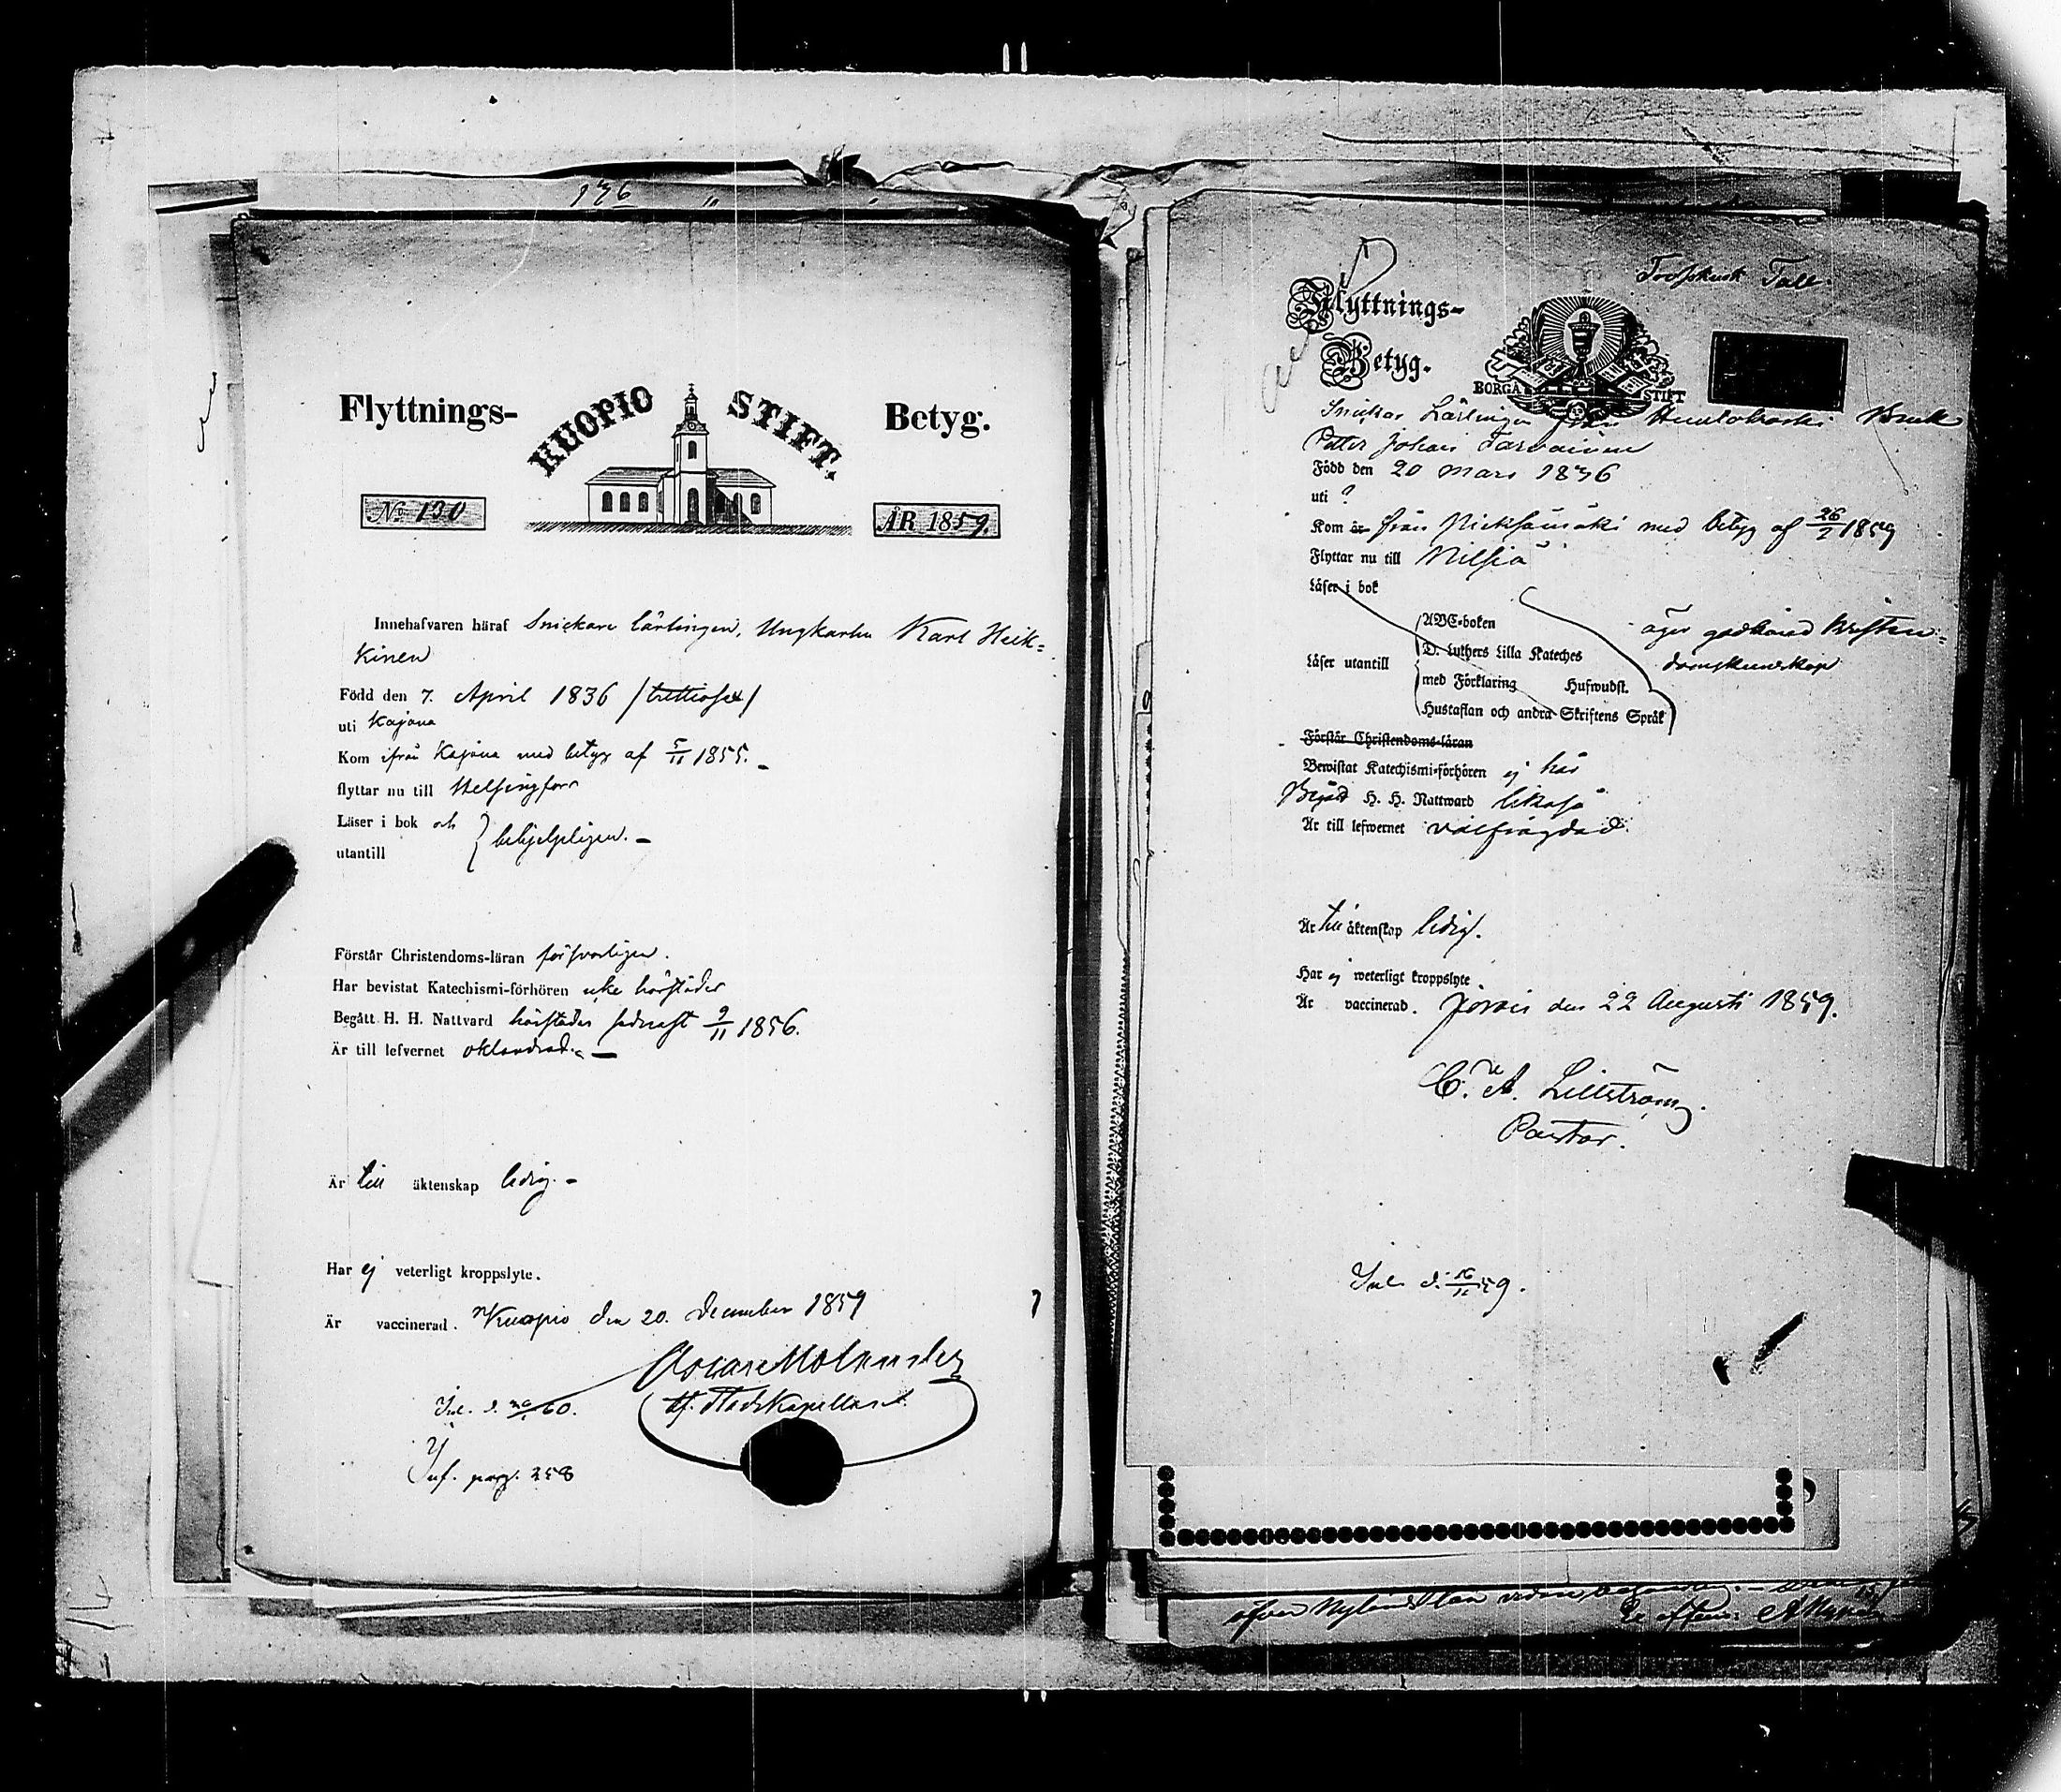 176
Flyttnings- KUOPIO STIFT. Betyg.
No 130 ÅR 1859.
Innehafvaren häraf Snickare lärlingen, Ungkarlen Karl Heik=
kinen
Född den 7. April 1836 /trettiosex/
uti Kajana
Kom ifrån Kajana med betyg af 5/11 1855.
flyttar nu till Helsingfors
Läser i bok och
utantill } behjelpligen.
Förstår Christendoms-läran försvarligen.
Har bevistat Katechismi-förhören icke härstädes
Begått H. H. Nattvard härstädes sednast 9/11 1856.
Är till lefvernet oklandrad.
Är till äktenskap ledig.
Har ej veterligt kroppslyte.
Är vaccinerad. Kuopio den 20. December 1859
Stadskapellan
Inl. d. /60.
Inf. pag. 258
Flyttnings-
Betyg.
BORGÅ STIFT
Snickar Lärlingen från Bruk
Petter Johan Tarvainen
Född den 20 Mars 1836
uti ?
Kom är från Pieksämäki med betyg af 26/2 1859
Flyttar nu till Nilsiä
Läser i bok
Läser utantill
ABC-boken
D. Luthers Lilla Kateches
med Förklaring Hufwudst.
Hustaflan och andra Skriftens Språk
äger godkänd kristen=
domskunskap
Förstår Christendoms-läran
Bewistat Katechismi-förhören ej här
Begått H. H. Nattward likaså
Är till lefwernet välfrägdad.
Är till äktenskap ledig.
Har ej weterligt kroppslyte.
Är vaccinerad. Jorois den 22 Augusti 1859.
C. A. Lillström
Pastor.
Inl. d. 16/11 59.
öfver Nylands län